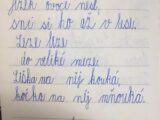 Ježek ovoce nesl,
sní si ho až v lese.
Leze leze
do veliké meze.
Liška na něj kouká,
kočka na něj mňouká.